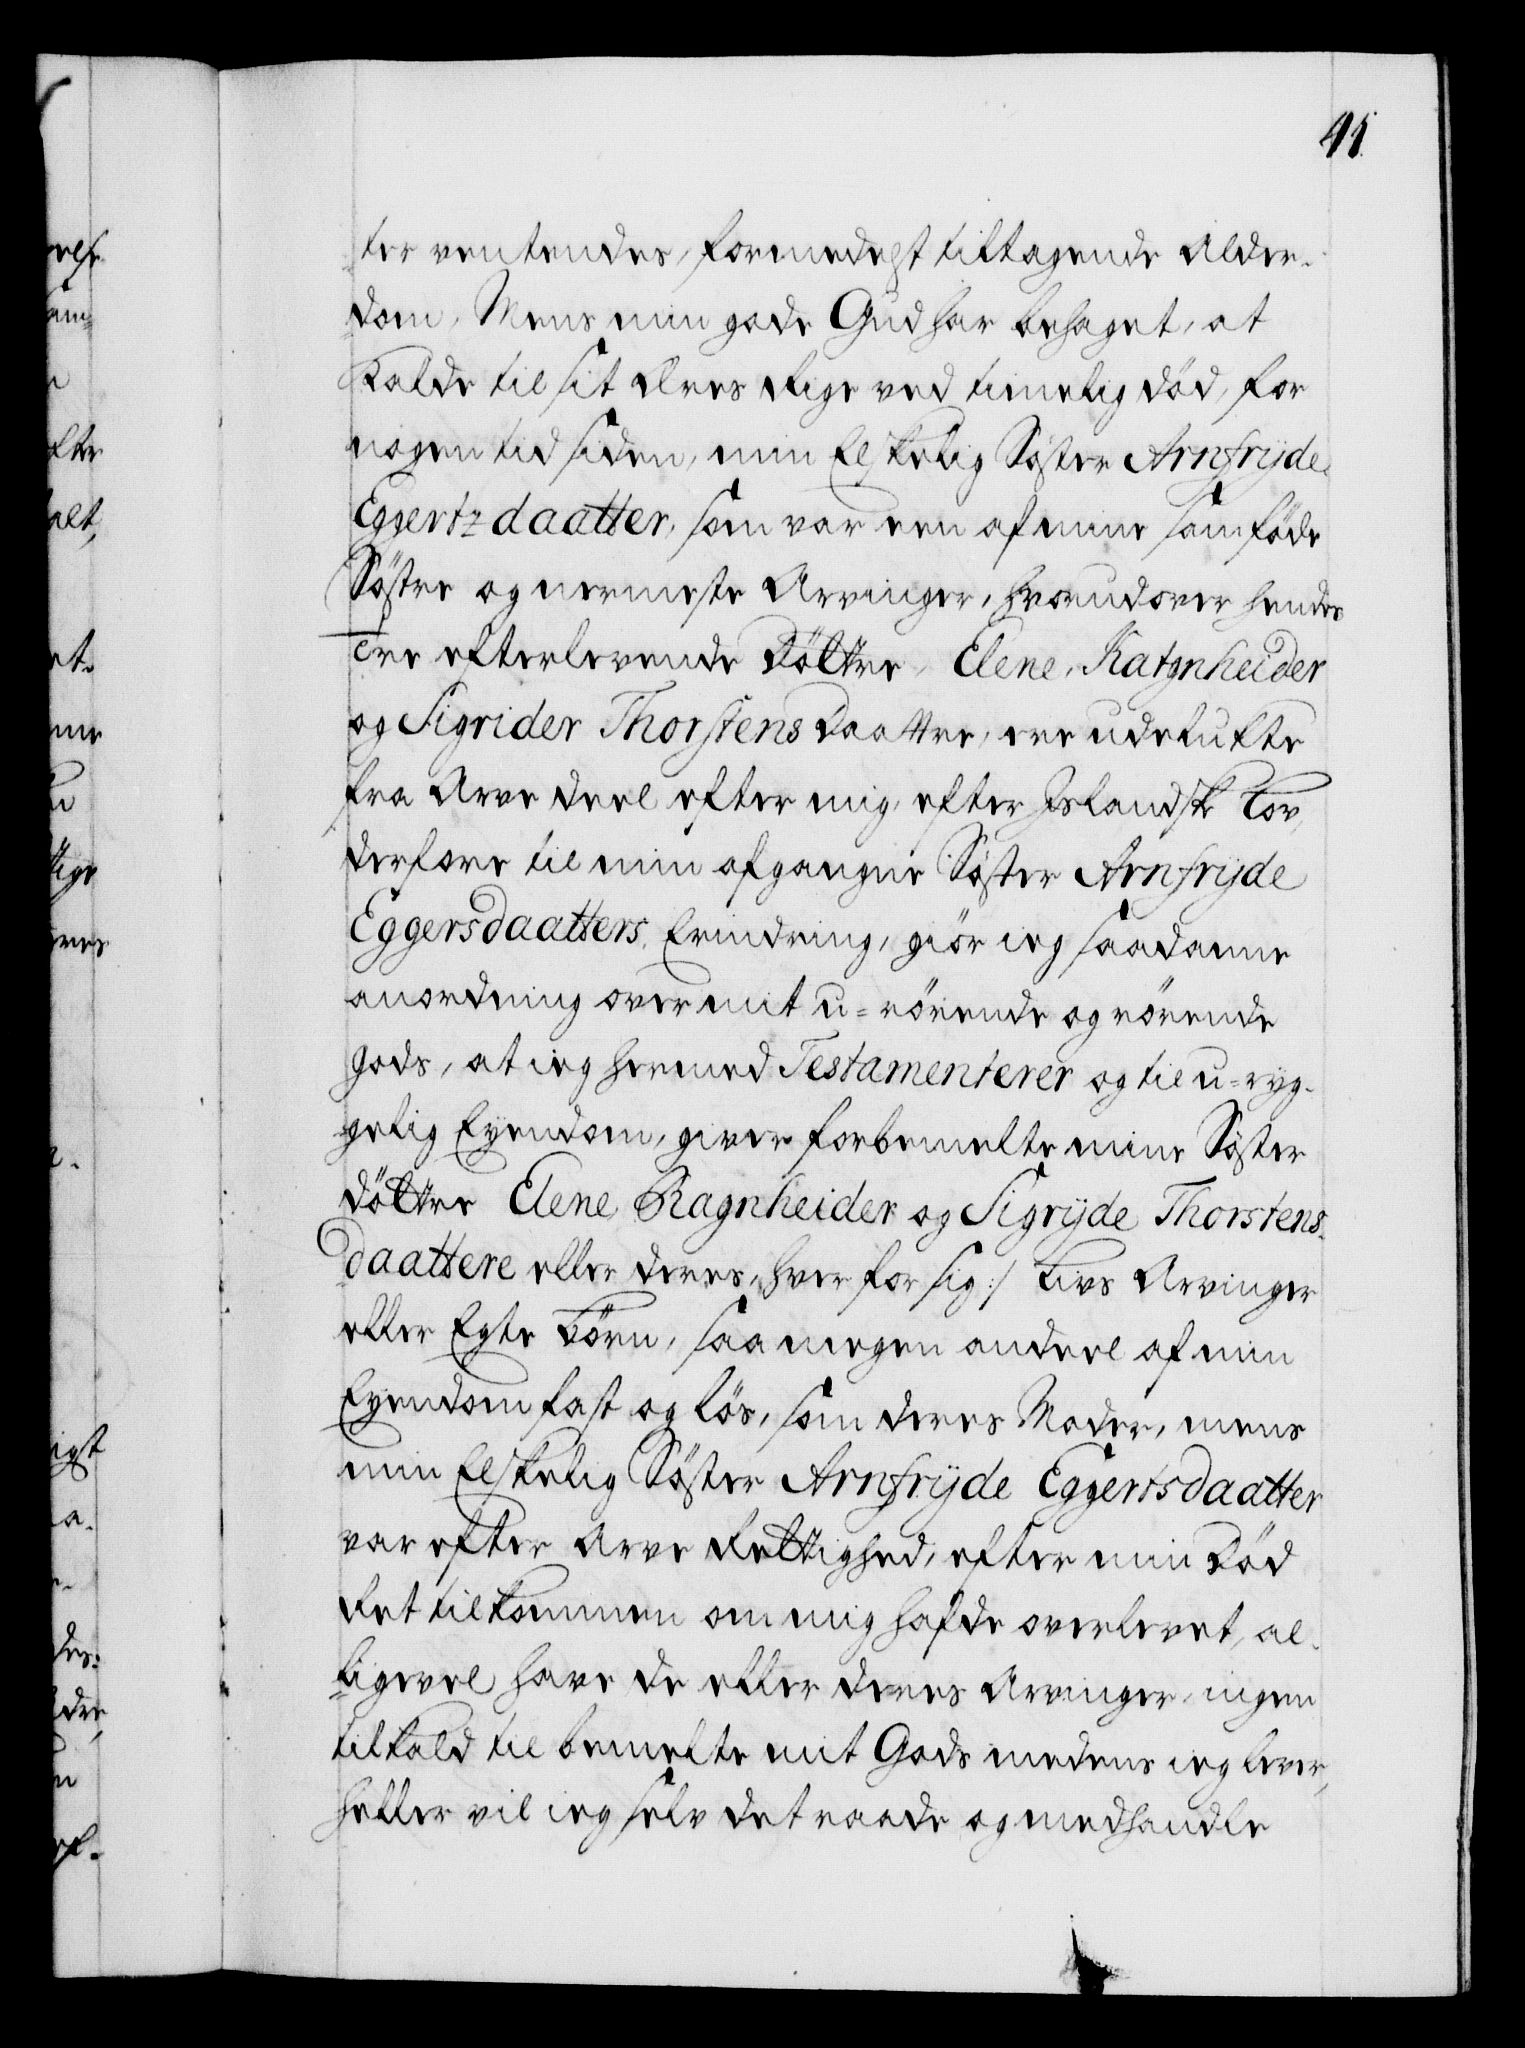 41.
ter ventendes, formedelst tiltagende Alder-
dom, Mens min gode Gud har behaget, at
kalde til sit Æres Rige ved timelig död, for
nogen tid siden, min Elskelig Söster Arnfryde
Eggertzdaatter, som var een af mine samföde
Söstre og nermeste Arvinger, hvorudover hendes
tre efterlevende Döttre, Elene, Ratgnheider
og Sigrider Thorstens Daattre, ere udelukte
fra Arve deel efter mig, efter Jslandsk Lov,
derfore til min afgangne Söster Arnfryde
Eggersdaatters Erindring, giör ieg saadanne
anordning over mit u-rörende og rörende
gods, at ieg hermed Testamenterer og til u-ryg-
gelig Eyendom, giver forbemelte mine Söster
döttre Elene, Ragnheider og Sigryde Thorstens-
daattere eller deres, hver for sig :/ Livs Arvinger
eller Egte Börn, saa megen andeel af min
Eyendom fast og lös, som deres Moder, mens
min Elskelig Söster Arnfryde Eggertsdaatter
var efter Arve Rettighed, efter min Död
Ret tilkommen om mig hafde overlevet, al-
ligevel have de eller deres Arvinger, ingen
tiltald til bemelte mit Gods medens ieg lever,
heller vil ieg selv det raade og medhandle